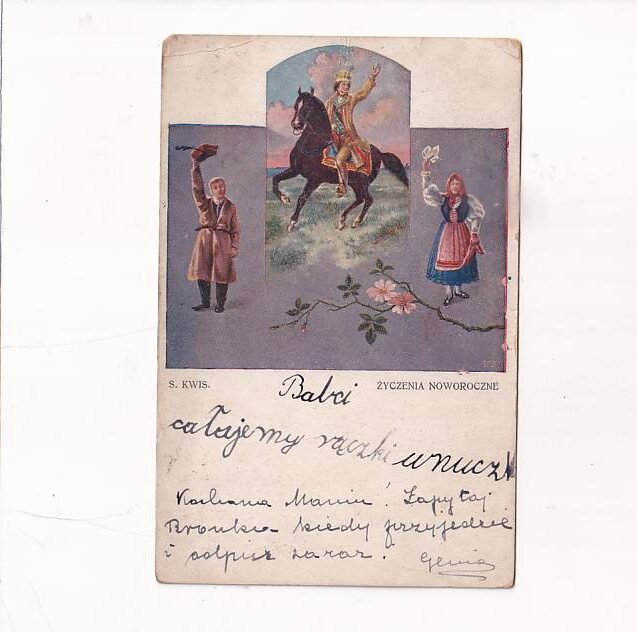 S. KWIS.
ŻYCZENIA NOWOROCZNE
Babci
całajemy rączki wnuczki
Kochana Maniu! Zapytaj
Bronka kiedy przyjedzie
i odpisz zaraz. Genia